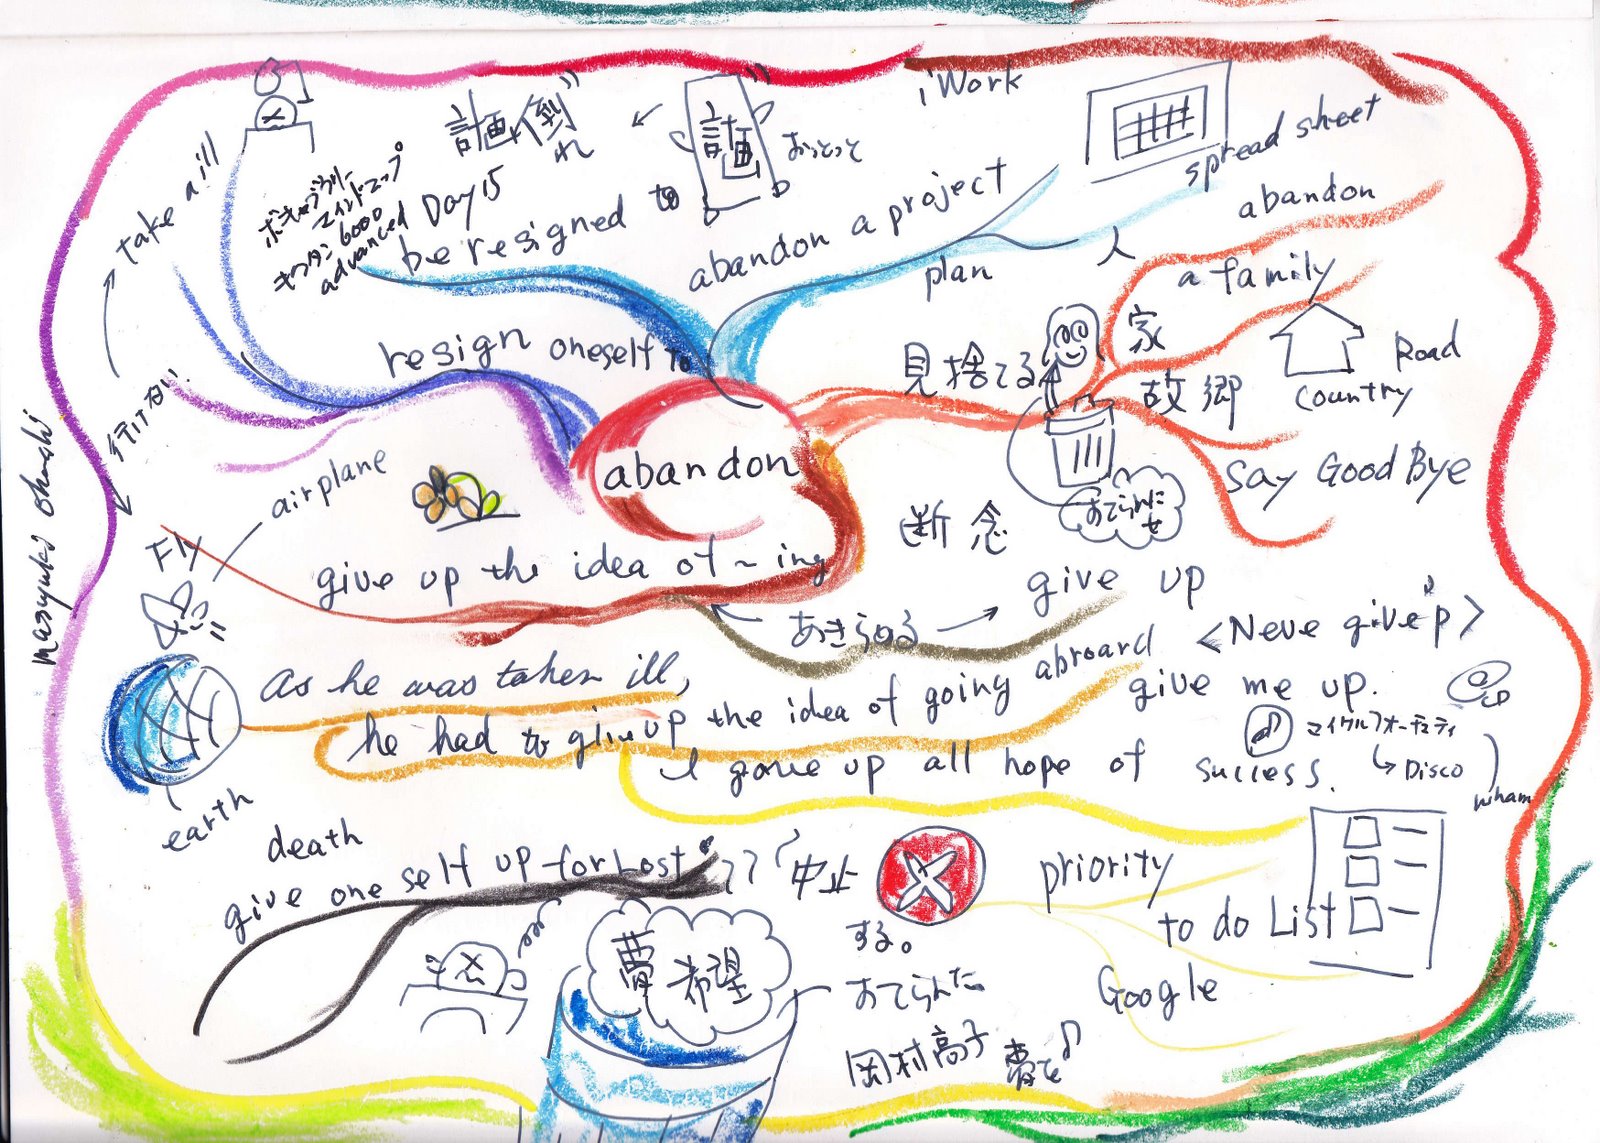 iWork
spread sheet
計画倒れ
計画
おっとっと
take a ill
ボキャブラリー
マインドマップ
キクタン 6000
advanced Day 15
be resigned to
abandon a project
plan
人
abandon
a family
家
resign oneself to
見捨てる
故郷
Road
country
行けない
Masyuki Ohashi
airplane
abandon
Say Good Bye
断念
Fly
give up the idea of ~ ing
あきらめる
give up
<Neve give up>
As he was taken ill,
he had to give up the idea of going abroard
give me up.
マイケルフォーチュニティ
Disco
wham
I gave up all hope of success.
earth
death
give one self up for Lost
中止
する。
priority
to do List
希望
Google
岡村高子